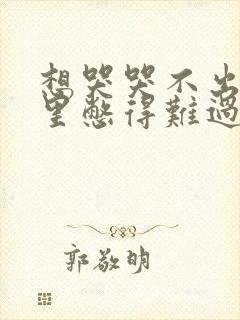 想哭哭不出
里憋得難過
郭敬明